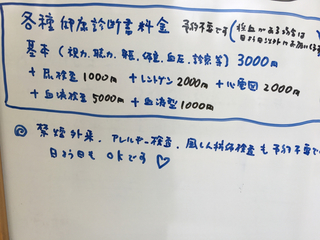 各種 健康診断書料金 予約不要です(採血がある場合は
日よう日以外にお願いします
基本(視力、聴力、身長、体重、血圧、診察 等) 3000円
+ 尿検査 1000円 + レントゲン 2000円 + 心電図 2000円
+ 血液検査 5000円 + 血液型 1000円
◎ 禁煙外来、アレルギー検査、風しん抗体検査 も 予約不要で
日よう日も OKです ♡